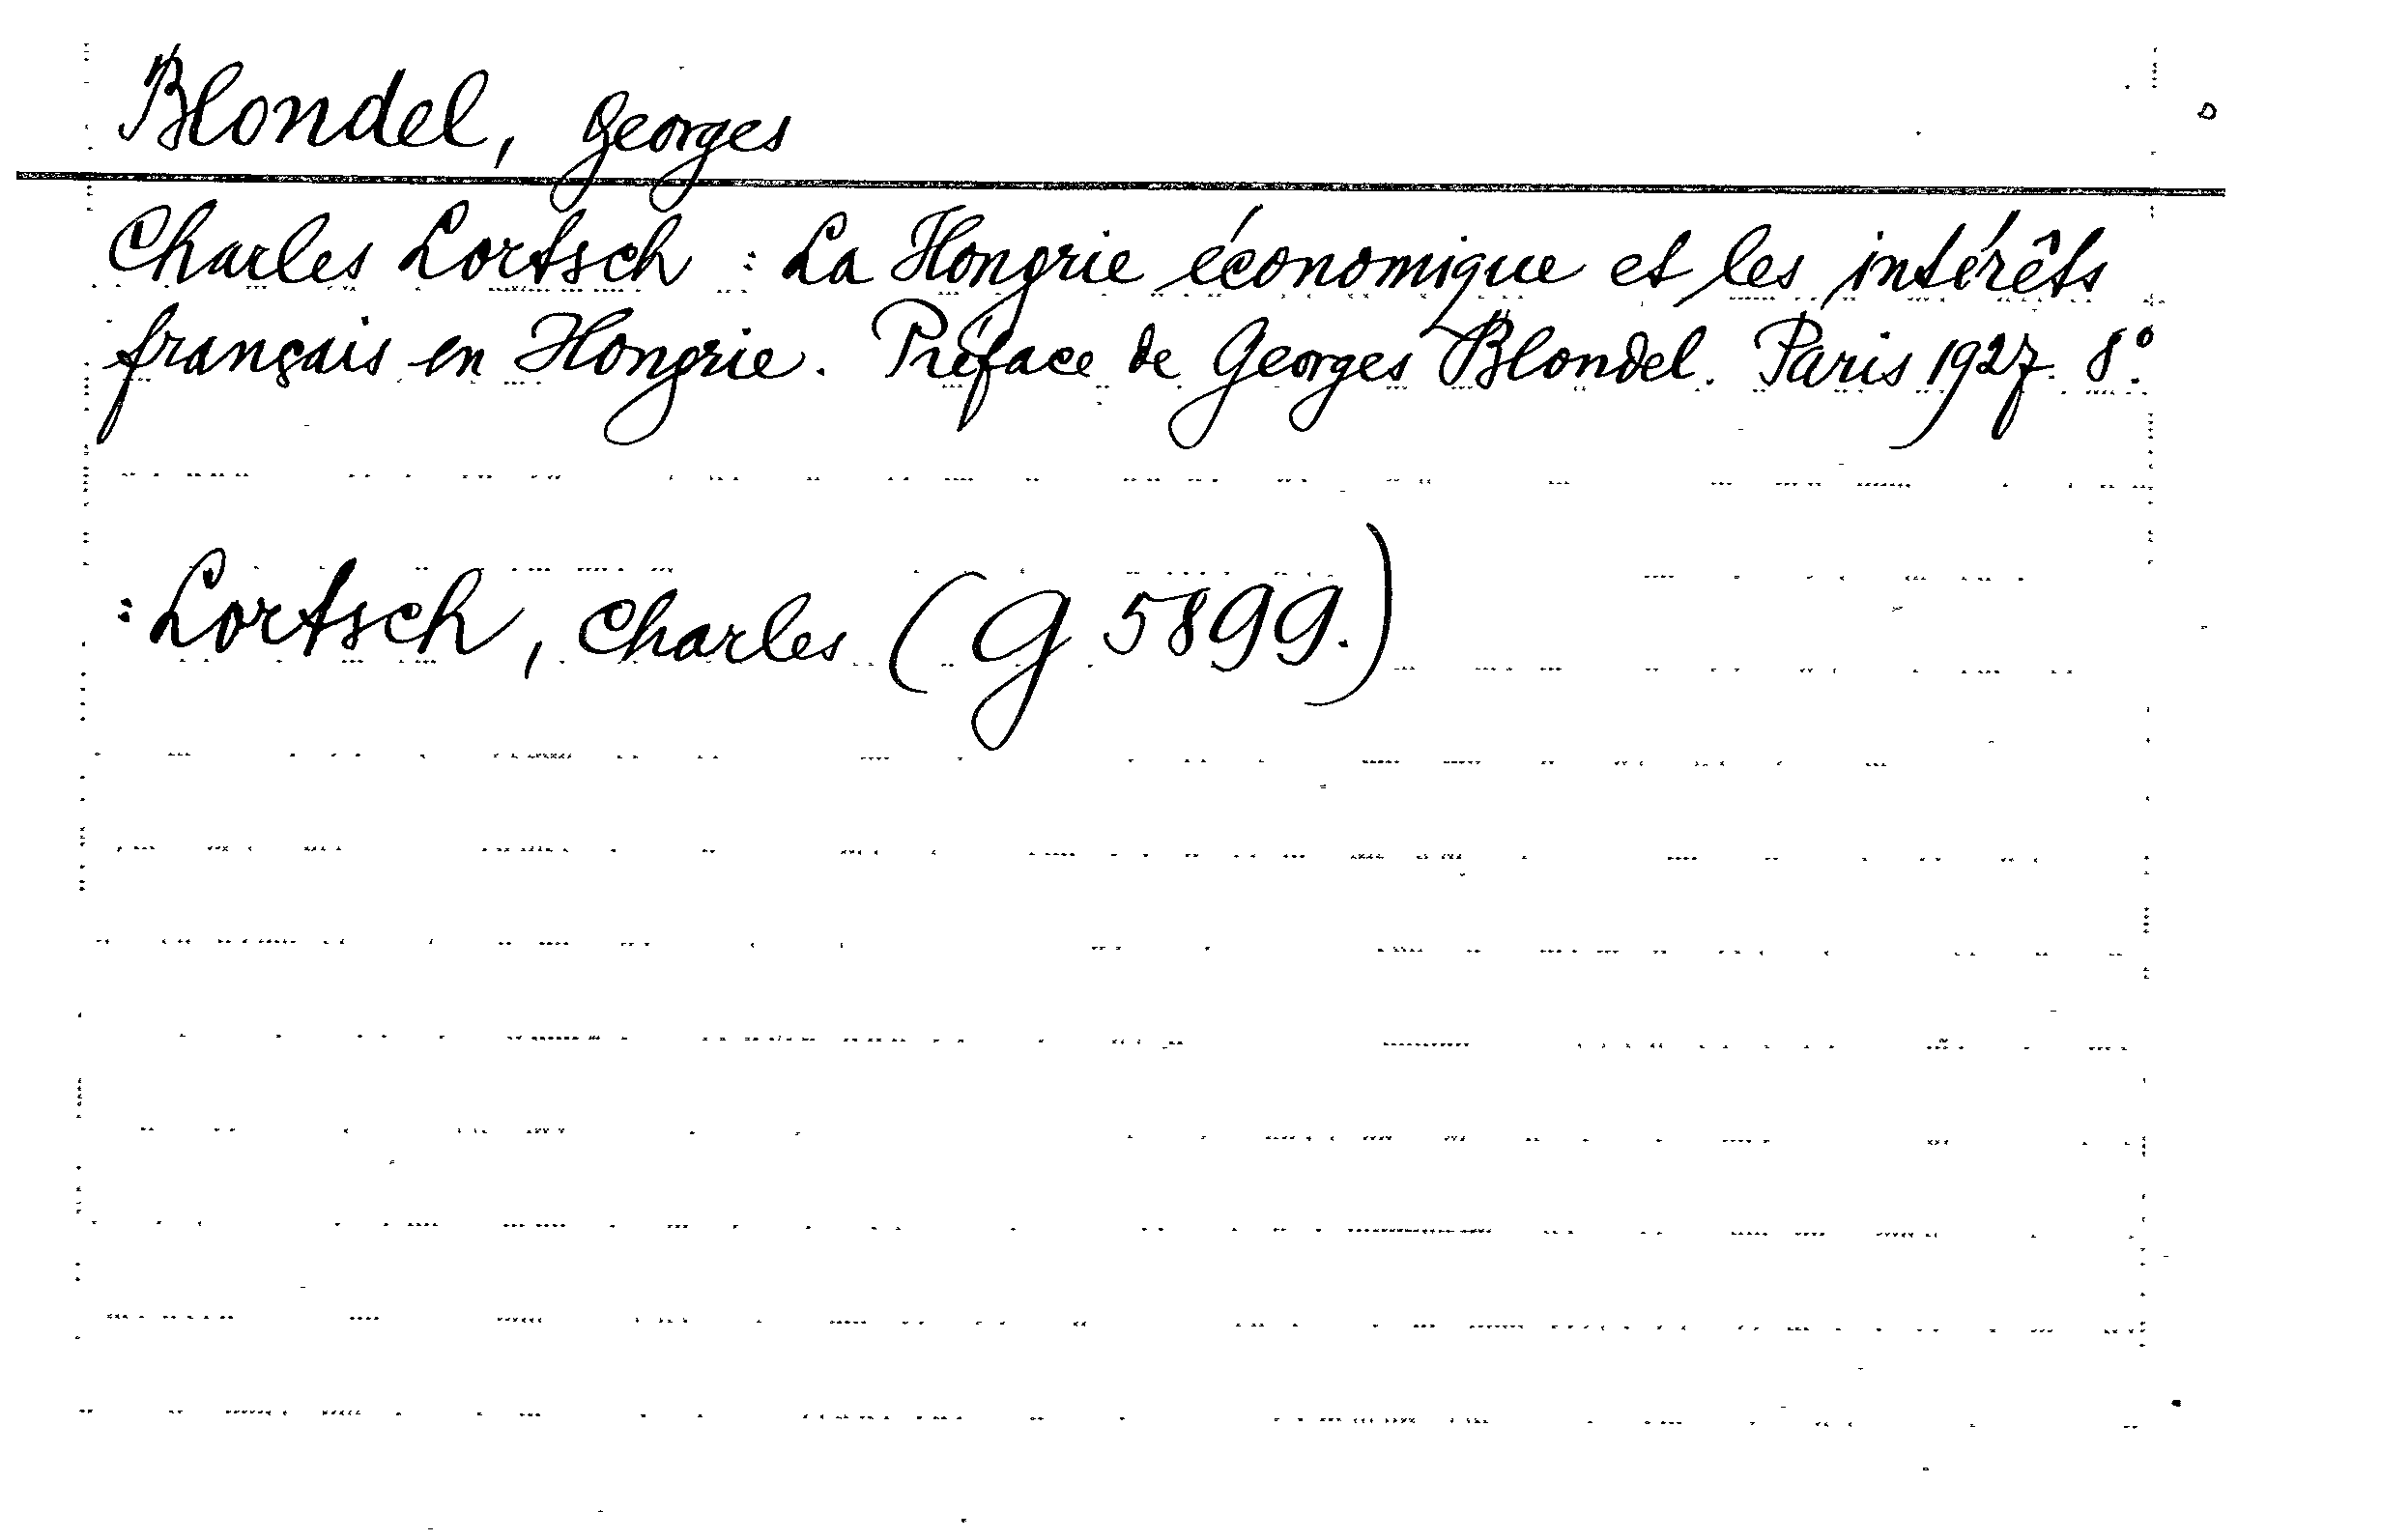 Blondel, Georges
Charles Lortsch : La Hongrie économique et les intérêts
français en Hongrie. Préface de Georges Blondel. Paris 1927. 8°.
: Lortsch, Charles (G 5899.)